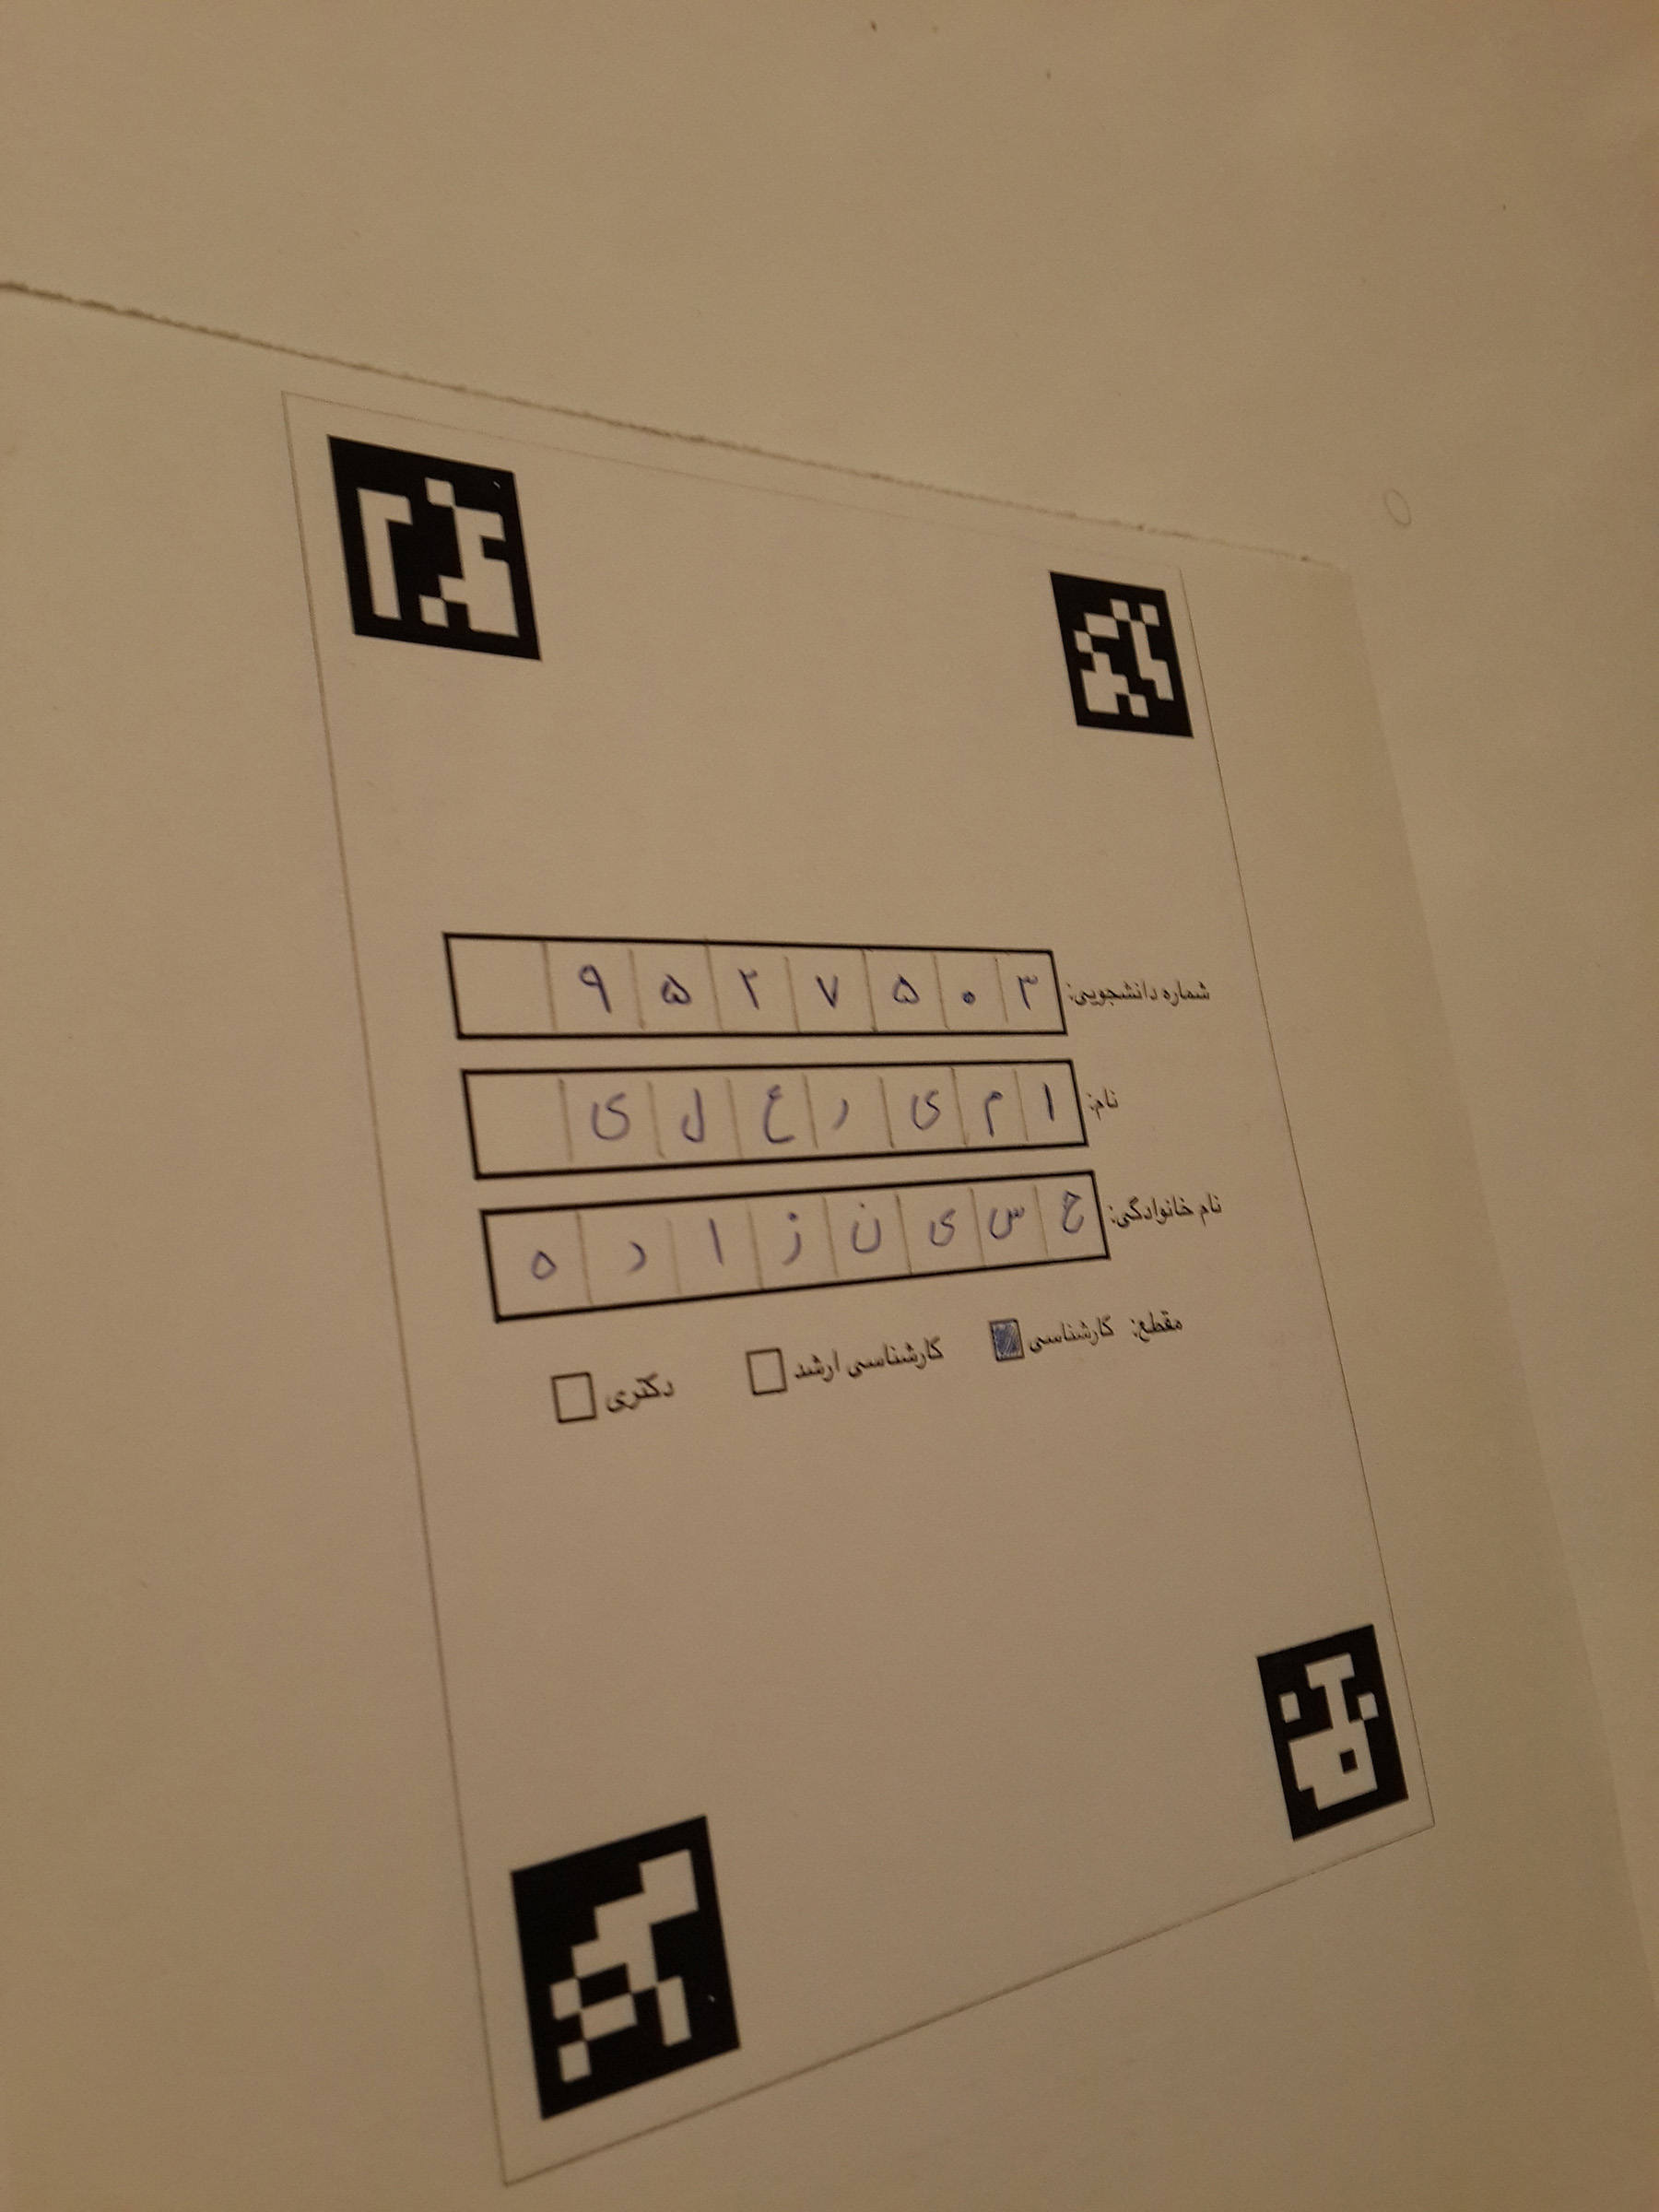 شماره دانشجویی: ۹۵۲۷۵۰۳
نام: ا م ی ر ع ل ی
نام خانوادگی: ح س ی ن ز ا د ه
مقطع: کارشناسی کارشناسی ارشد دکتری